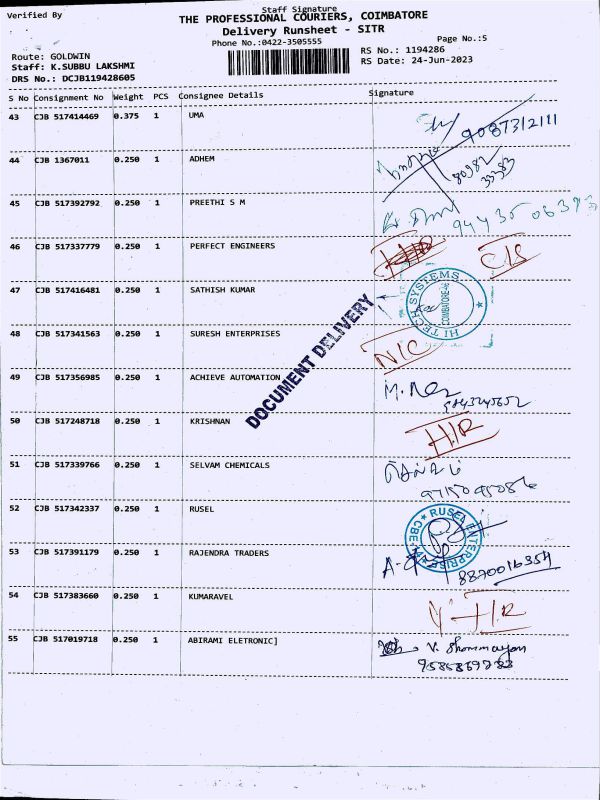 Staff Signature
Verified By
THE PROFESSIONAL COURIERS, COIMBATORE
Delivery Runsheet - SITR
Phone No.:0422-3505555
Page No.:5
Route: GOLDWIN
RS No.: 1194286
Staff: K.SUBBU LAKSHMI
RS Date: 24-Jun-2023
DRS No.: DCJB119428605
S No Consignment No Weight PCS Consignee Details Signature
43 CJB 517414469 0.375 1 UMA
9087312111
44 CJB 1367011 0.250 1 ADHEM
80982
33383
45 CJB 517392792 0.250 1 PREETHI S M
94435 06393
46 CJB 517337779 0.250 1 PERFECT ENGINEERS
C/S
47 CJB 517416481 0.250 1 SATHISH KUMAR
HI TECH SYSTEMS
COIMBATORE-46
48 CJB 517341563 0.250 1 SURESH ENTERPRISES
N/C
DOCUMENT DELIVERY
49 CJB 517356985 0.250 1 ACHIEVE AUTOMATION
50 CJB 517248718 0.250 1 KRISHNAN
H.R
51 CJB 517339766 0.250 1 SELVAM CHEMICALS
52 CJB 517342337 0.250 1 RUSEL
RUSEL ENTERPRISE
53 CJB 517391179 0.250 1 RAJENDRA TRADERS
8870016354
54 CJB 517383660 0.250 1 KUMARAVEL
H.R
55 CJB 517019718 0.250 1 ABIRAMI ELETRONIC]